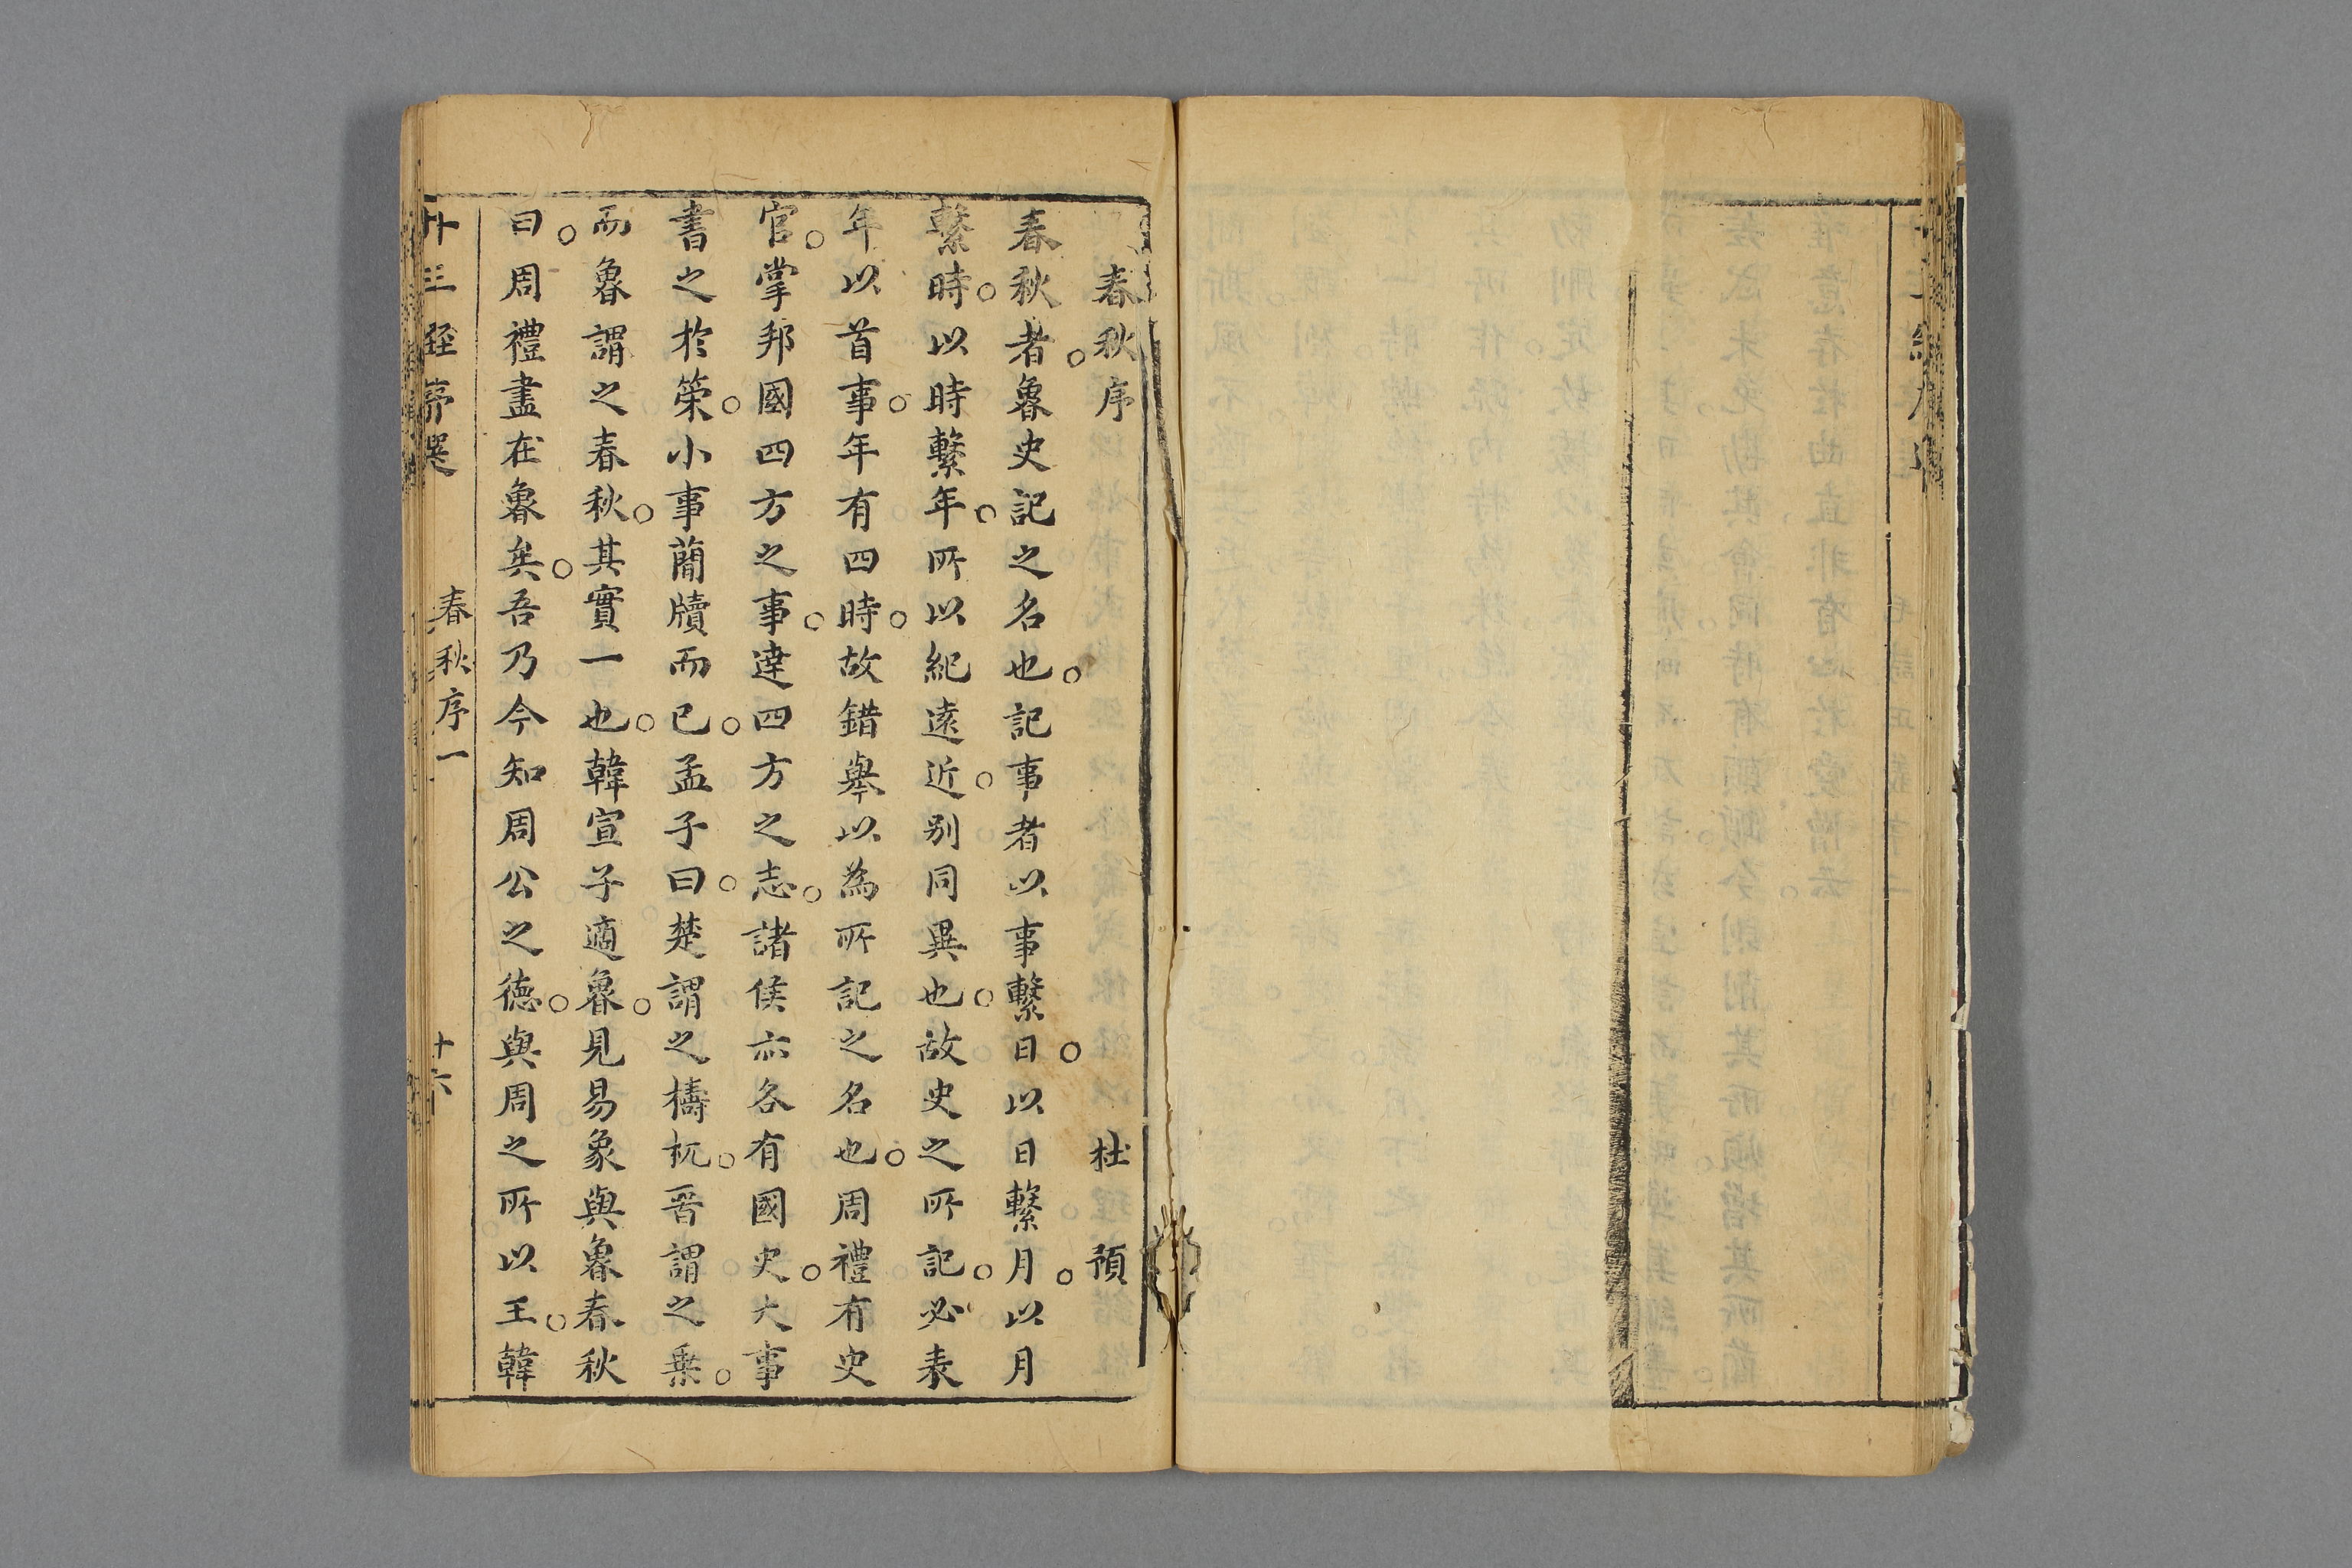 春秋序　杜預
春秋者。魯史記之名也。記事者以事繫日。以日繫月。以月
繫時。以時繫年。所以紀遠近。別同異也。故史之所記。必表
年以首事。年有四時。故錯舉以為所記之名也。周禮有史
官。掌邦國四方之事。達四方之志。諸侯亦各有國史。大事
書之於策。小事簡牘而已。孟子曰。楚謂之檮杌。晉謂之乗。
而魯謂之春秋。其實一也。韓宣子適魯。見易象與魯春秋
曰。周禮盡在魯矣。吾乃今知周公之德。與周之所以王。韓
十三經序選　春秋序一　十六